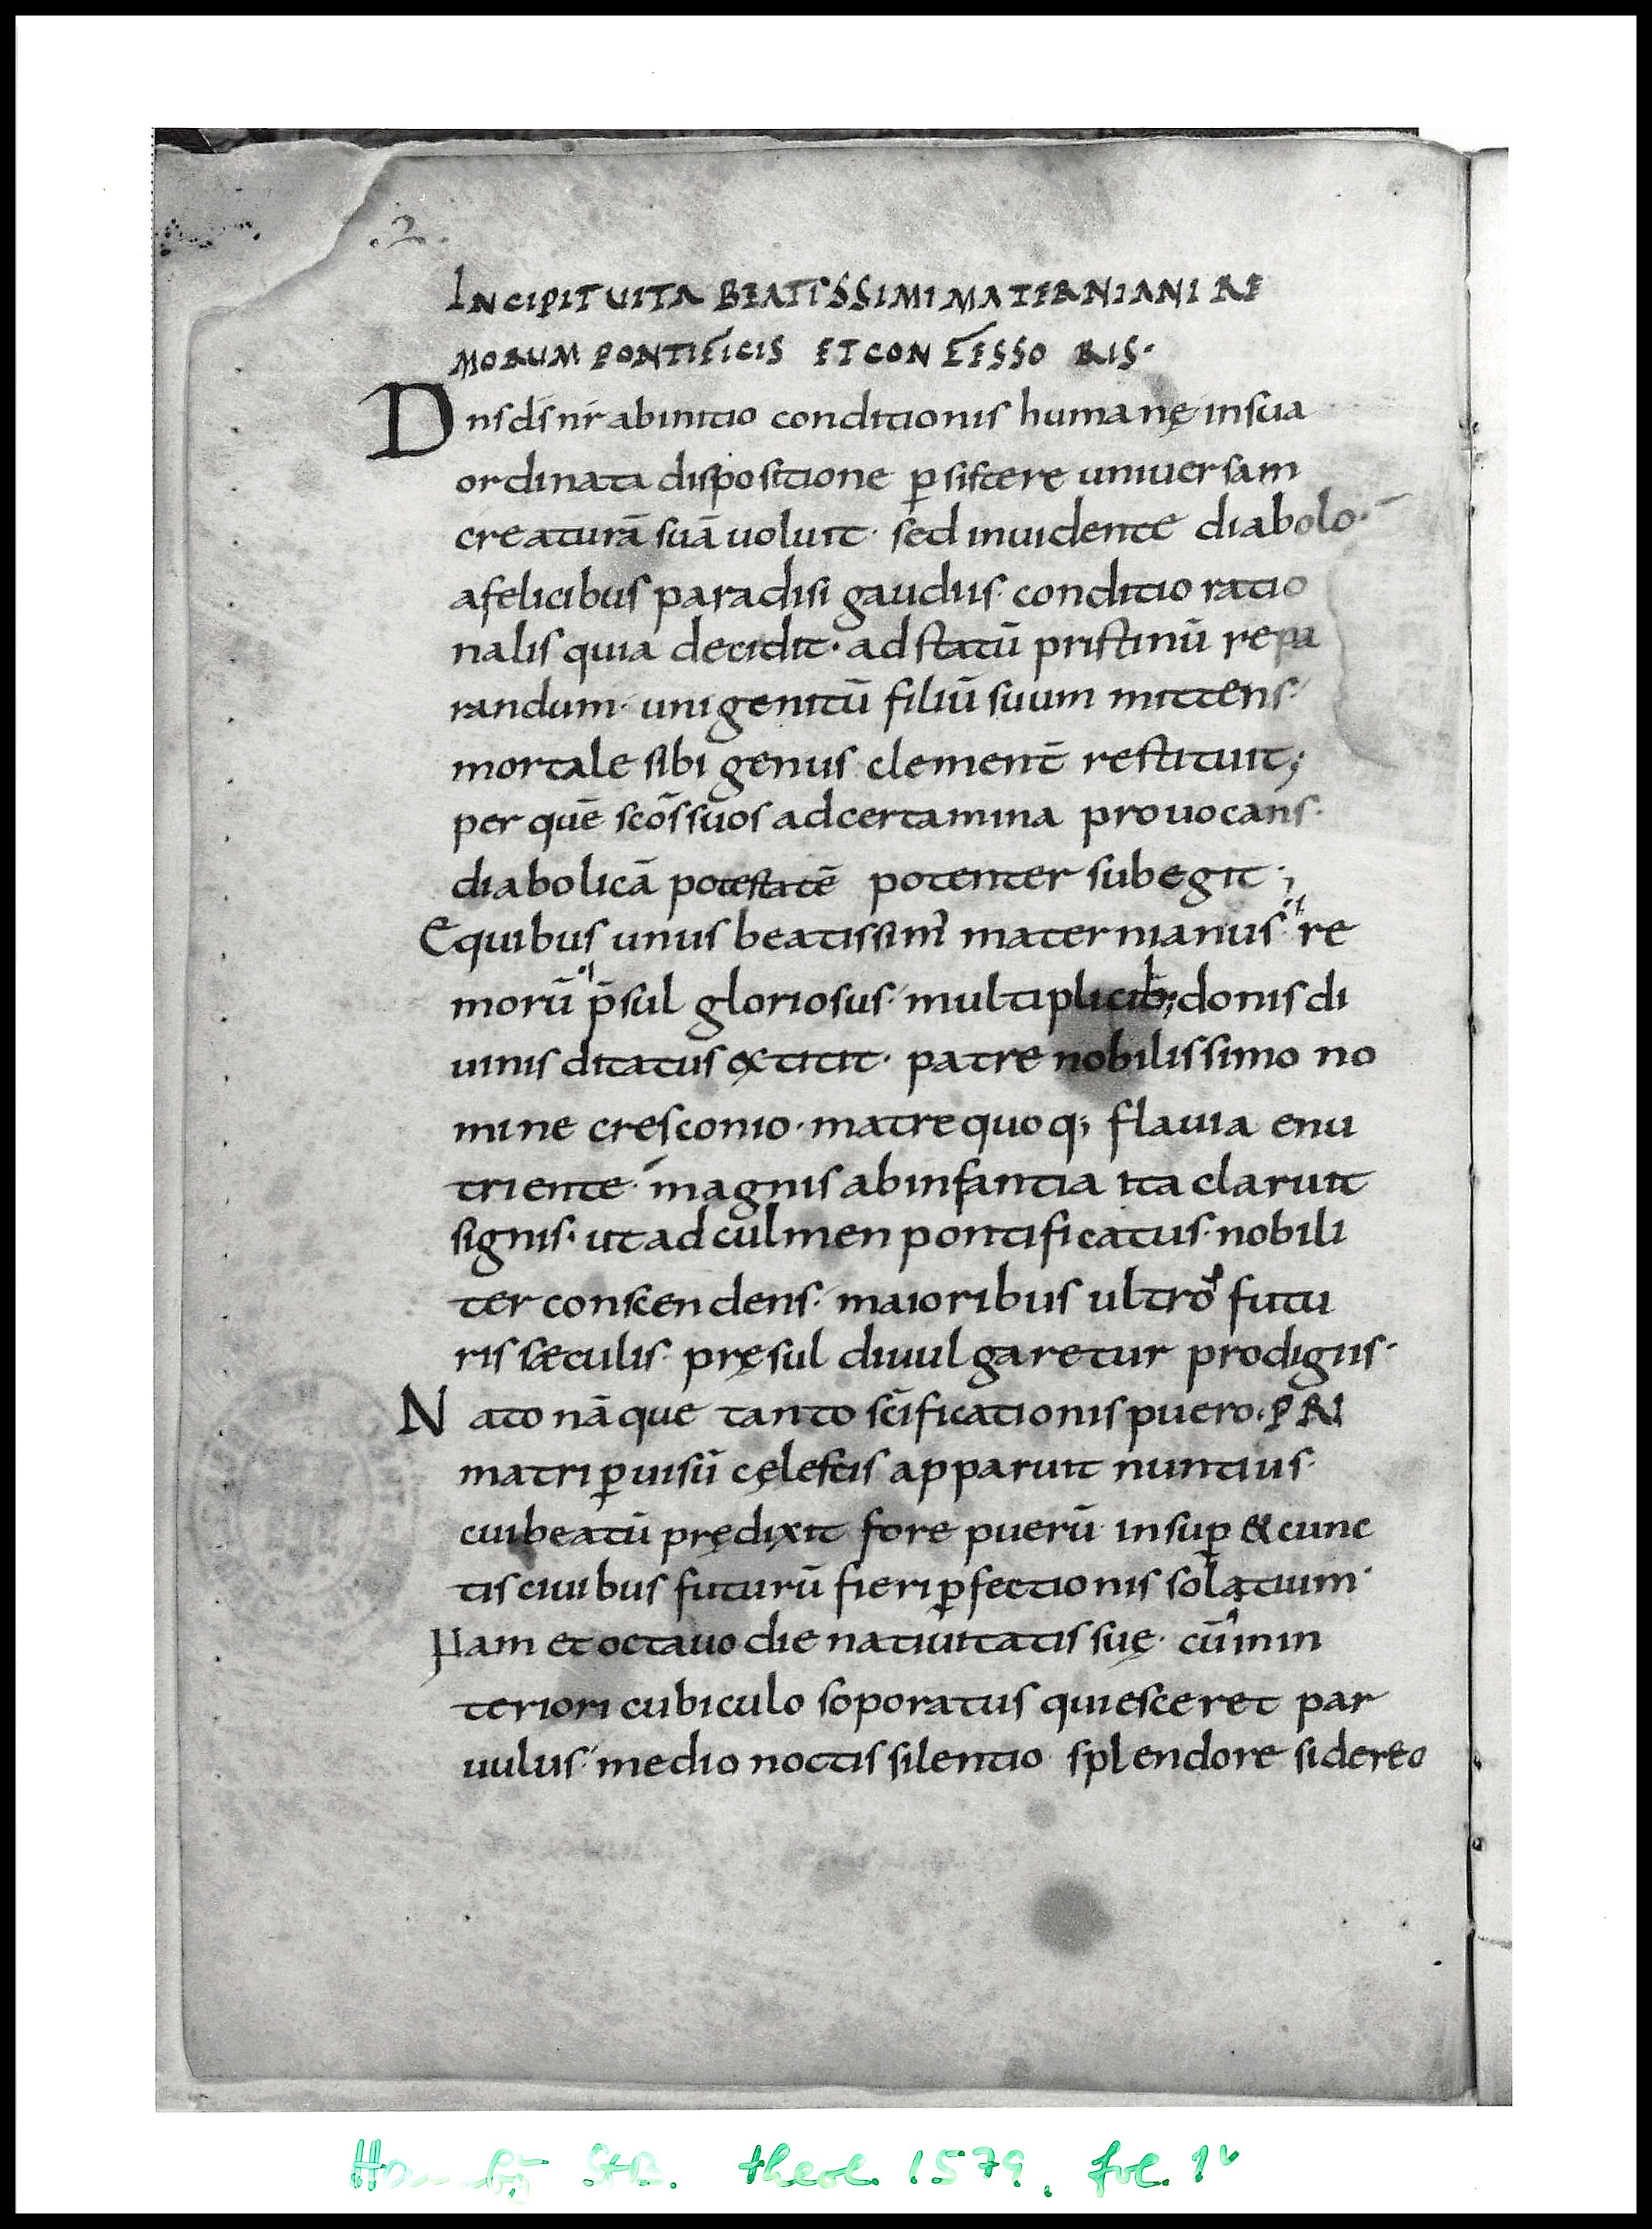 .2.
INCIPIT UITA BEATISSIMI MATERNIANI RE
MORUM PONTIFICIS ET CONFESSO RIS·
Dn̄s ds̄ nr̄ ab initio conditionis humanę in sua
ordinata dispositione p̱sistere uniuersam
creaturā suā uoluit· sed inuidente diabolo·
a felicibus paradisi gaudiis· conditio ratio
nalis quia decidit· ad statū pristinū repa
randum· unigenitū filiū suum mittens·
mortale sibi genus clement̄ restituit;
per quē scōs suos ad certamina prouocans·
diabolicā potestatē potenter subegit;
E quibus unus beatissim' maternianus· re
morū p̄sul gloriosus· multiplicib; donis di
uinis ditatus extitit· patre nobilissimo no
mine cresconio· matre quoq; flauia enu
triente· magnis ab infantia ita claruit
signis· ut ad culmen pontificatus· nobili
ter conscendens· maioribus ultro futu
ris sæculis· pręsul diuulgaretur prodigiis·
Nato nāque tanto sc̄ificationis puero· PRI
matri p̱ uisū cęlestis apparuit nuntius·
cui beatū prędixit fore puerū insup̱ & cunc
tis ciuibus futurū fieri p̱fectionis solatium·
Nam et octauo die natiuitatis suę· cū in in
teriori cubiculo soporatus quiesceret par
uulus· medio noctis silentio splendore sidereo
Hambg StB. theol. 1579, fol. 1v